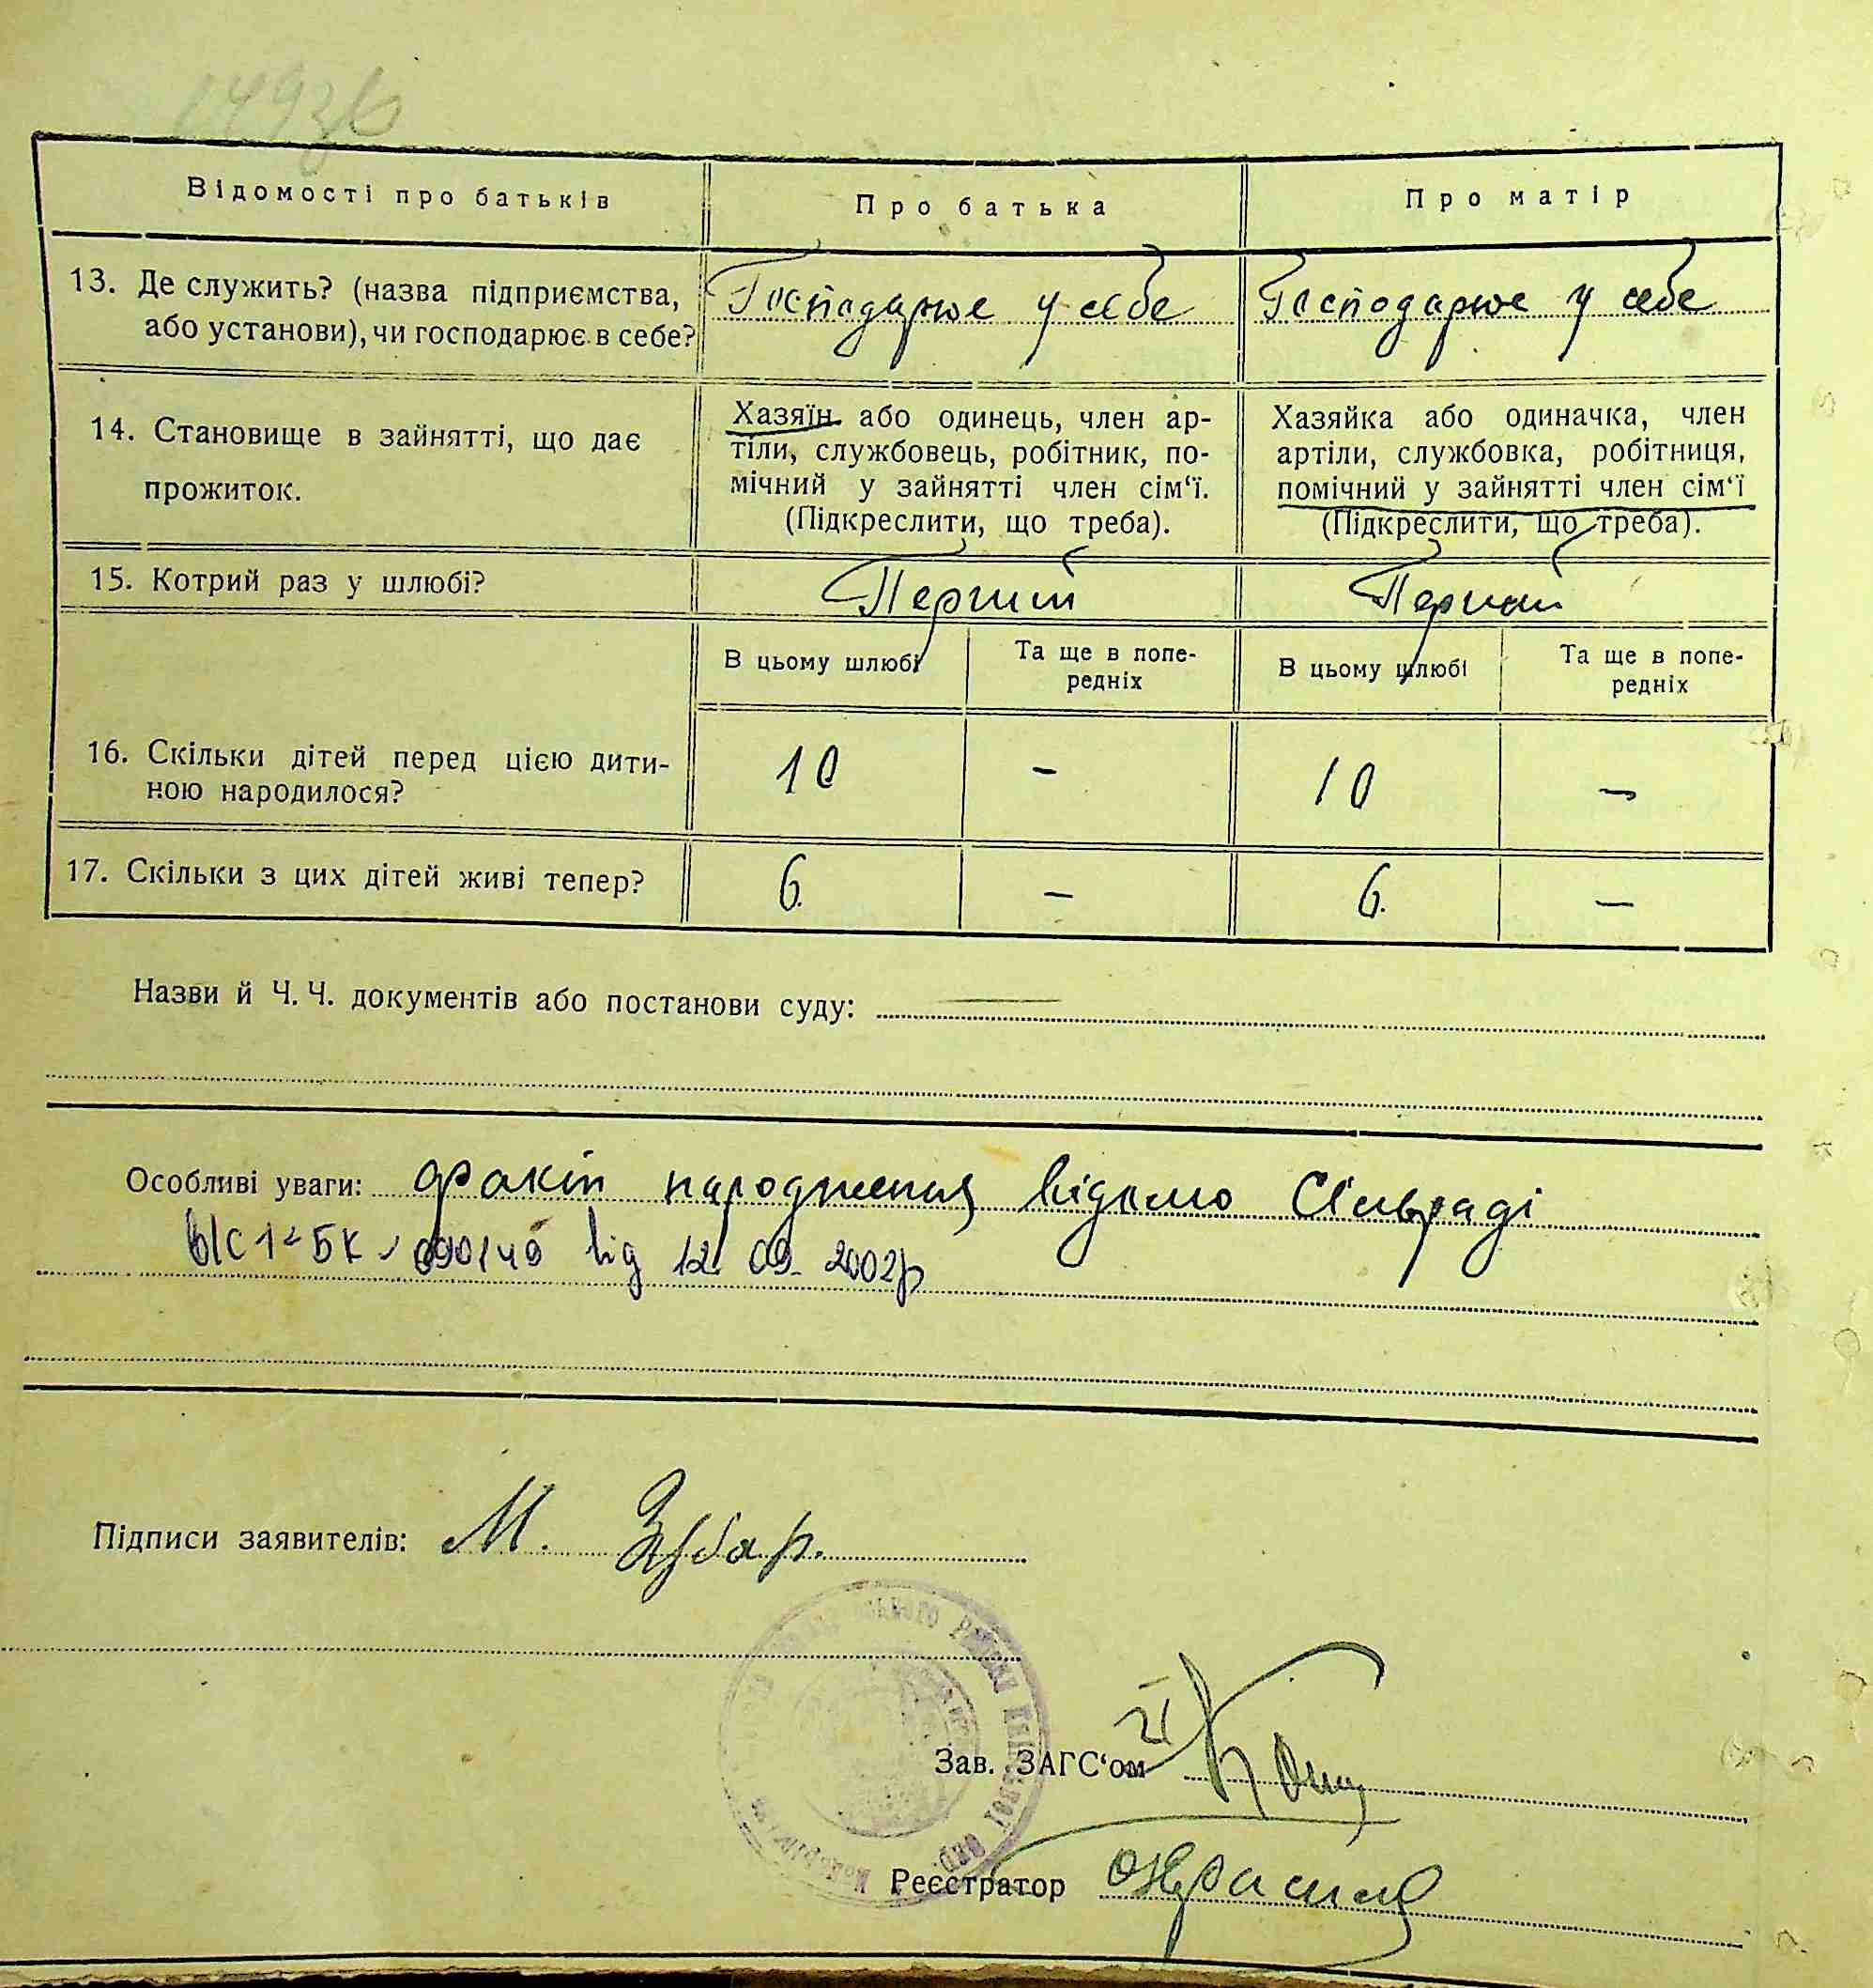 149зв
Відомості про батьків
Про батька
Про матір
13. Де служить? (назва підприємства,
або установи), чи господарює в себе?
Господарює у себе
Господарює у себе
14. Становище в зайнятті, що дає
прожиток.
Хазяїн або одинець, член ар-
тіли, службовець, робітник, по-
мічний у зайнятті член сім‘ї.
(Підкреслити, що треба).
Хазяйка або одиначка, член
артіли, службовка, робітниця,
помічний у зайнятті член сім‘ї
(Підкреслити, що треба).
15. Котрий раз у шлюбі?
Перший
Перший
В цьому шлюбі
Та ще в попе-
редніх
В цьому шлюбі
Та ще в попе-
редніх
16. Скільки дітей перед цією дити-
ною народилося?
10
-
10
-
17. Скільки з цих дітей живі тепер?
6.
-
6.
-
Назви й Ч. Ч. документів або постанови суду: —
Особливі уваги: Факт народження відомо Сільраді
090149 від 12. 09. 2002р
Підписи заявителів: М.
Зав. ЗАГС‘ом
Реєстратор